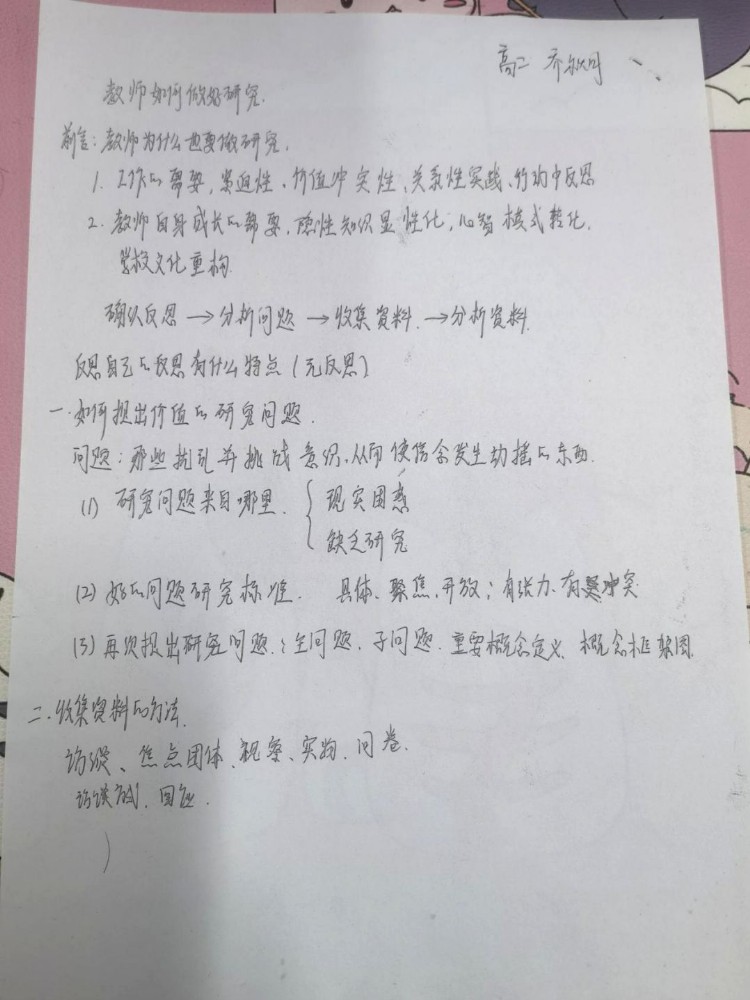 高二 乔
教师如何做好研究.
前言:教师为什么也要做研究.
1. 工作的需要,紧迫性、价值冲突性、关系性实践、行动中反思
2. 教师自身成长的需要,隐性知识显性化,心智模式转化,
学校文化重构.
确认反思→分析问题→收集资料.→分析资料.
反思自己的反思有什么特点(元反思)
一.如何提出价值的研究问题.
问题:那些扰乱并挑战意识、从而使信念发生动摇的东西.
(1) 研究问题来自哪里. { 现实困惑
缺乏研究
(2) 好的问题研究标准. 具体、聚焦,开放;有张力、有冲突
(3) 再次提出研究问题:主问题、子问题.重要概念定义、概念框架图.
二.收集资料的方法.
访谈、焦点团体、观察、实物、问卷.
访谈 回应.